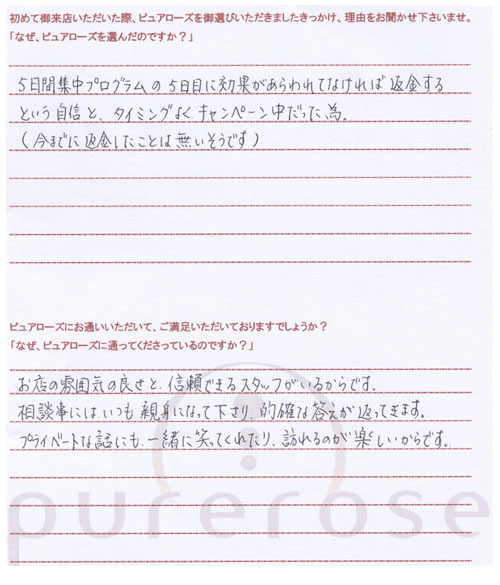 初めて御来店いただいた際、ピュアローズを御選びいただきましたきっかけ、理由をお聞かせ下さいませ。
「なぜ、ピュアローズを選んだのですか？」
5日間集中プログラムの5日目に効果があらわれてなければ返金する
という自信と、タイミングよくキャンペーン中だった為。
(今までに返金したことは無いそうです)
ピュアローズにお通いいただいて、ご満足いただいておりますでしょうか？
「なぜ、ピュアローズに通ってくださっているのですか？」
お店の雰囲気の良さと、信頼できるスタッフがいるからです。
相談事には、いつも親身になって下さり、的確な答えが返ってきます。
プライベートな話にも、一緒に笑ってくれたり、訪れるのが楽しいからです。
purerose